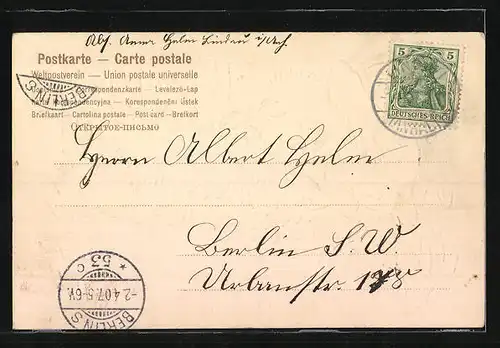 Abs. Anna Helm Lindau i/Anh.
Postkarte — Carte postale
Weltpostverein — Union postale universelle
Correspondenzkarte — Levelező-Lap
Korespondenční lístek
Briefkaart — Cartolina postale — Post card — Brefkort
ОТКРЫТОЕ-ПИСЬМО
5 5
DEUTSCHES REICH
BERLIN S
Herrn Albert Helm
Berlin S. W
Urbanstr. 178
* 53 c
-2.4.07.5-6V.
BERLIN S